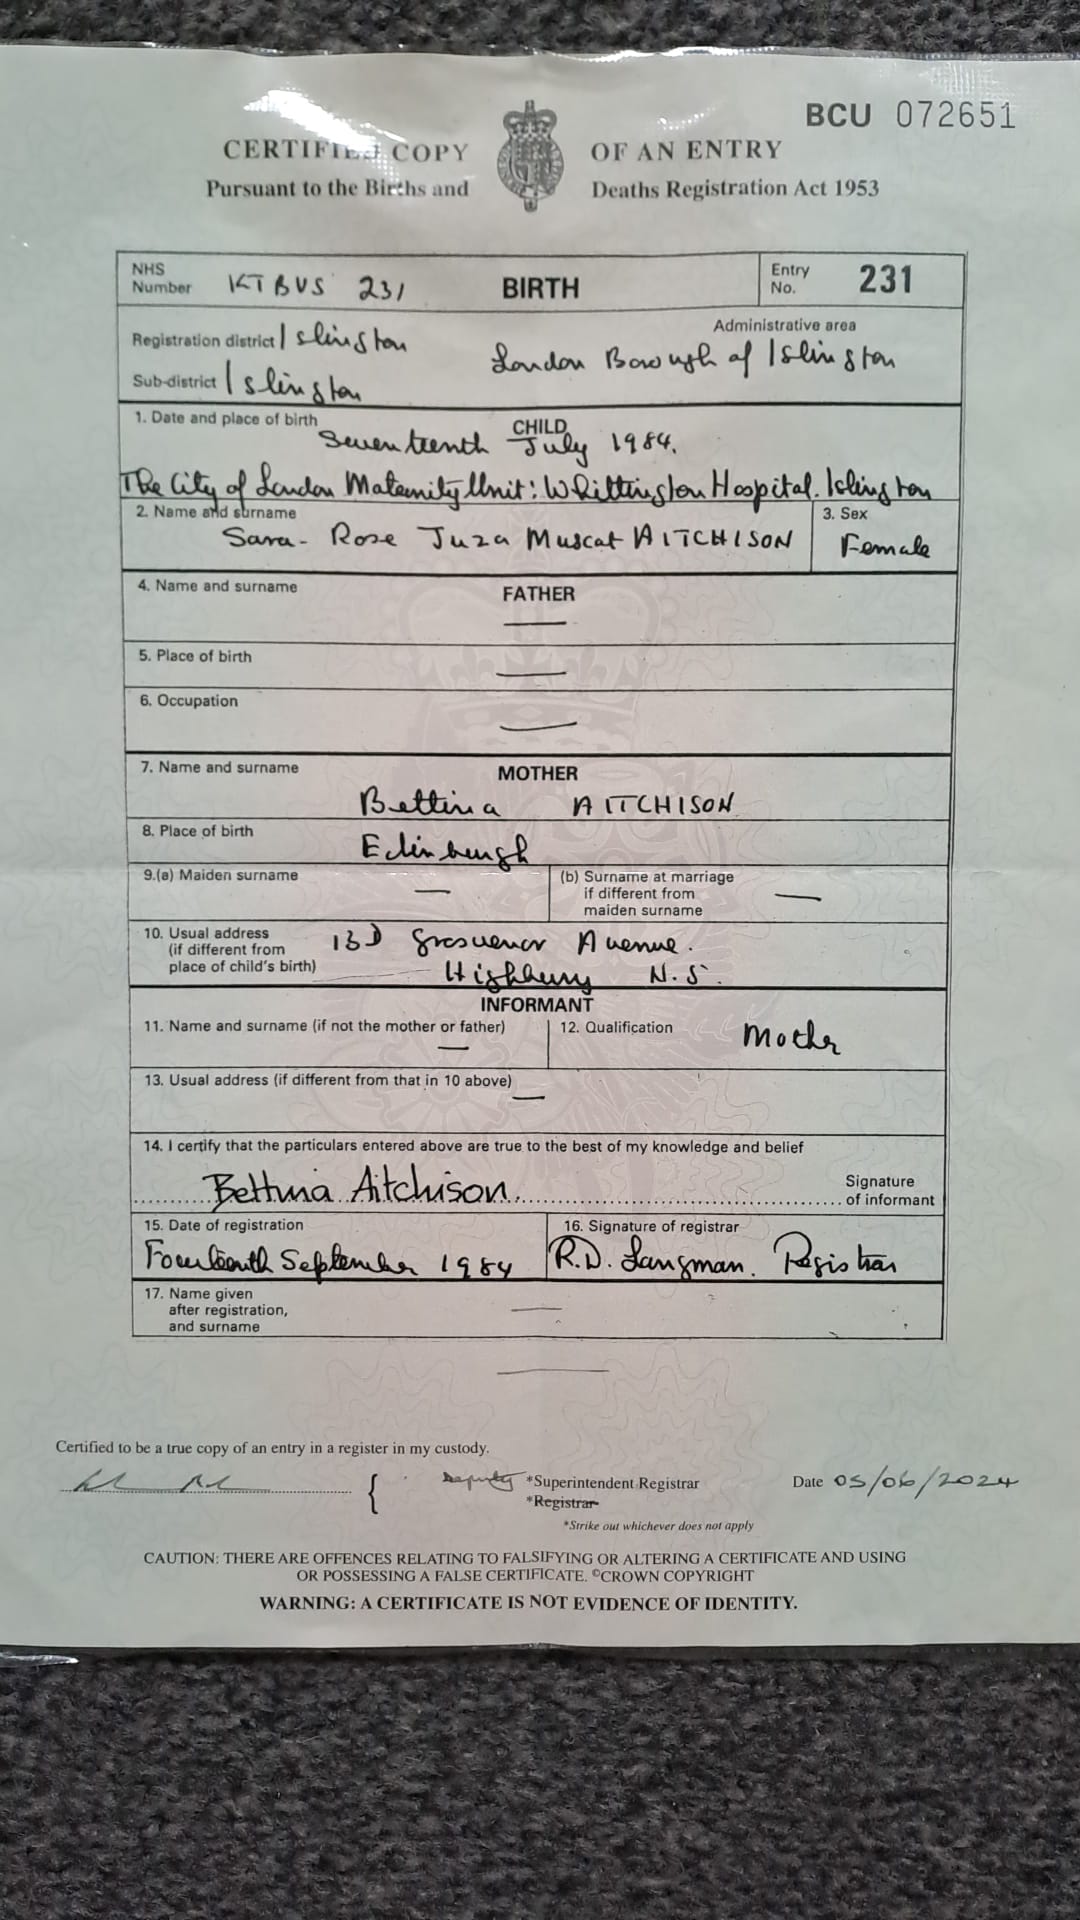 BCU 072651
CERTIFIED COPY OF AN ENTRY
Pursuant to the Births and Deaths Registration Act 1953
NHS Number KTBVS 231 BIRTH Entry No. 231
Registration district Islington Administrative area
Sub-district Islington London Borough of Islington
1. Date and place of birth CHILD
Seventeenth July 1984.
The City of London Maternity Unit: Whittington Hospital. Islington
2. Name and surname 3. Sex
Sara-Rose Juza Muscat AITCHISON Female
4. Name and surname FATHER
—
5. Place of birth
—
6. Occupation
—
7. Name and surname MOTHER
Bettina AITCHISON
8. Place of birth
Edinburgh
9.(a) Maiden surname — (b) Surname at marriage
if different from —
maiden surname
10. Usual address 13D Grosvenor Avenue.
(if different from
place of child's birth) Highbury N.5.
INFORMANT
11. Name and surname (if not the mother or father) 12. Qualification Mother
—
13. Usual address (if different from that in 10 above)
—
14. I certify that the particulars entered above are true to the best of my knowledge and belief
Bettina Aitchison. Signature
of informant
15. Date of registration 16. Signature of registrar
Fourteenth September 1984 R.D. Langman. Registrar
17. Name given
after registration, —
and surname
Certified to be a true copy of an entry in a register in my custody.
{ Deputy *Superintendent Registrar Date 05/06/2024
*Registrar
*Strike out whichever does not apply
CAUTION: THERE ARE OFFENCES RELATING TO FALSIFYING OR ALTERING A CERTIFICATE AND USING
OR POSSESSING A FALSE CERTIFICATE. ©CROWN COPYRIGHT
WARNING: A CERTIFICATE IS NOT EVIDENCE OF IDENTITY.